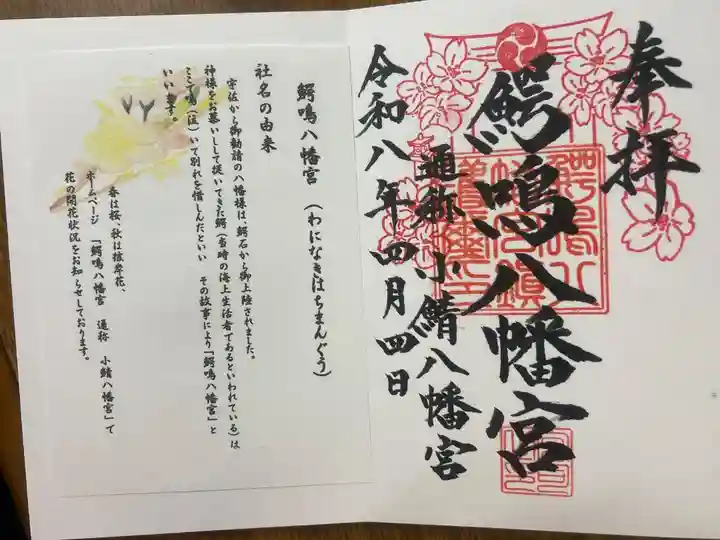 奉拝
鰐鳴八幡宮
通称 小鯖八幡宮
令和八年四月四日
鰐鳴八幡宮 (わになきはちまんぐう)
社名の由来
宇佐から御勧請の八幡様は、鰐石から御上陸されました。
神様をお慕いしして従いてきた鰐(当時の海上生活者であるといわれている)は
ここで鳴(泣)いて別れを惜しんだといい その故事により「鰐鳴八幡宮」と
いいます。
春は桜、秋は彼岸花、
ホームページ 「鰐鳴八幡宮 通称 小鯖八幡宮」で
花の開花状況をお知らせしております。